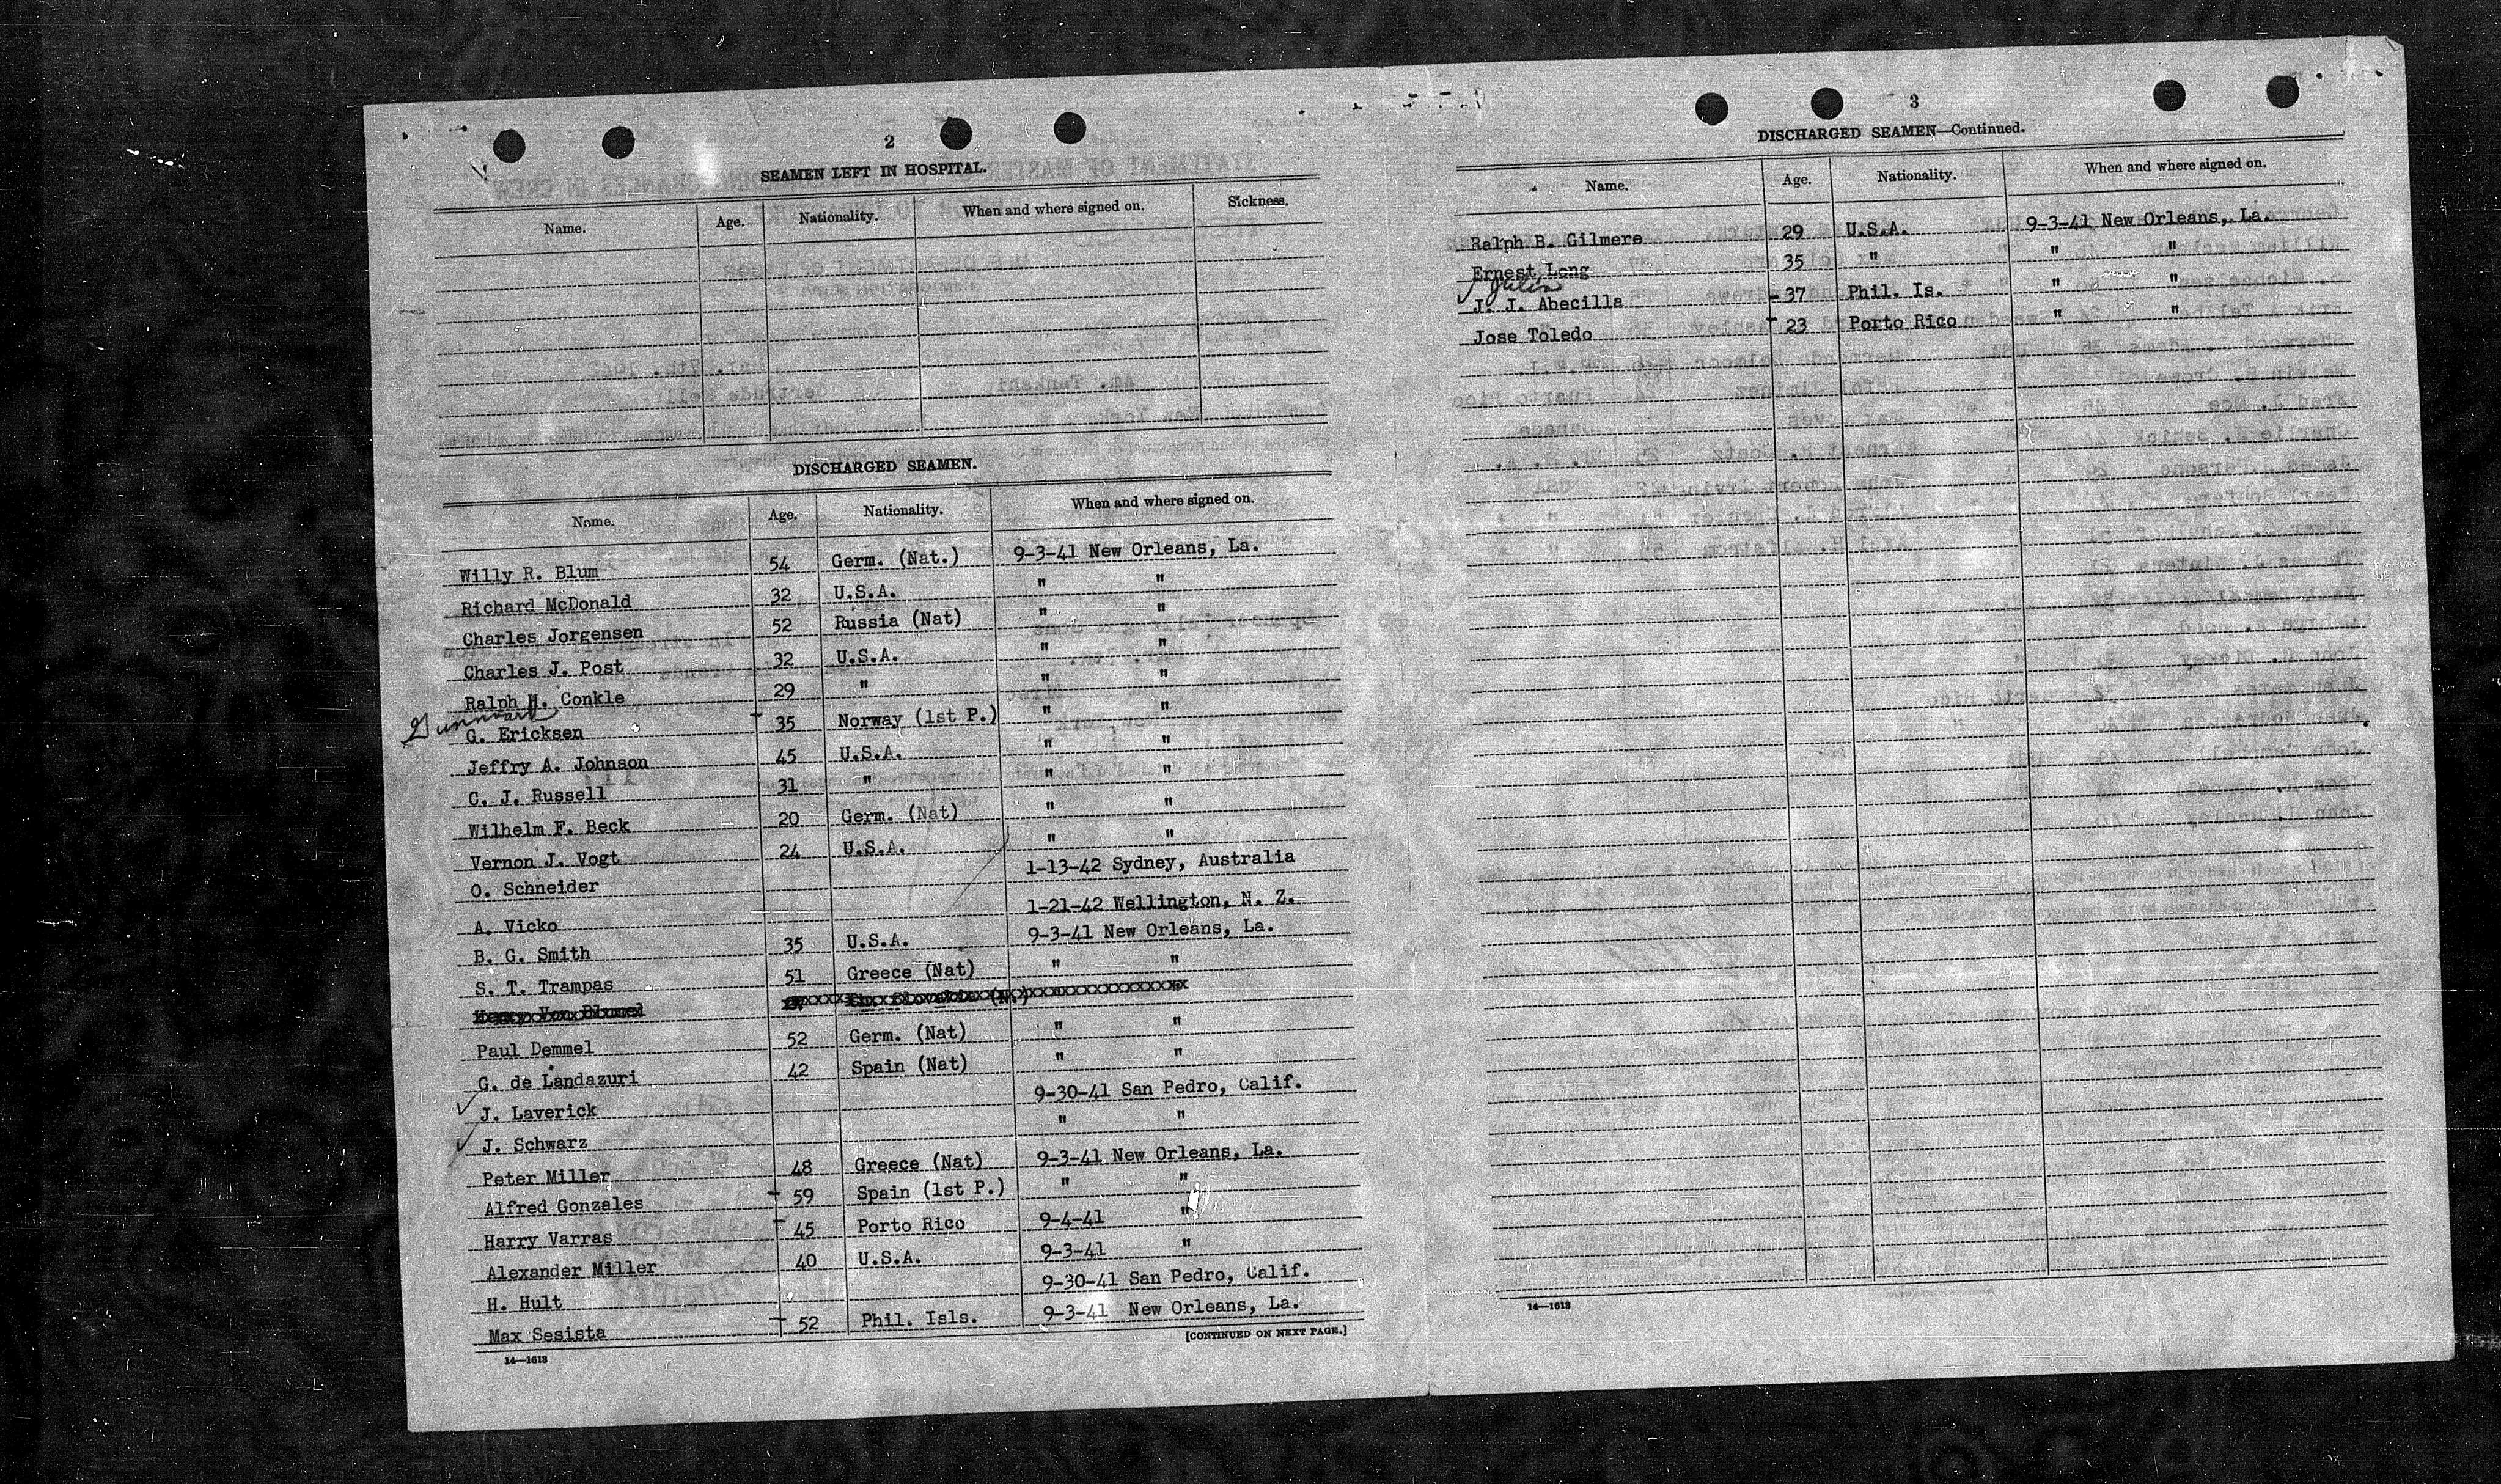 2
SEAMEN LEFT IN HOSPITAL.
Name. Age. Nationality. When and where signed on. Sickness.
DISCHARGED SEAMEN.
Name. Age. Nationality. When and where signed on.
Willy R. Blum 54 Germ. (Nat.) 9-3-41 New Orleans, La.
Richard McDonald 32 U.S.A. " "
Charles Jorgensen 52 Russia (Nat) " "
Charles J. Post 32 U.S.A. " "
Ralph H. Conkle 29 " " "
Gunnvard
G. Ericksen 35 Norway (1st P.) " "
Jeffry A. Johnson 45 U.S.A. " "
C. J. Russell 31 " " "
Wilhelm F. Beck 20 Germ. (Nat) " "
Vernon J. Vogt 24 U.S.A. " "
O. Schneider 1-13-42 Sydney, Australia
A. Vicko 1-21-42 Wellington, N. Z.
B. G. Smith 35 U.S.A. 9-3-41 New Orleans, La.
S. T. Trampas 51 Greece (Nat) " "
Paul Demmel 52 Germ. (Nat) " "
G. de Landazuri 42 Spain (Nat) " "
✓ J. Laverick 9-30-41 San Pedro, Calif.
✓ J. Schwarz " "
Peter Miller 48 Greece (Nat) 9-3-41 New Orleans, La.
Alfred Gonzales 59 Spain (1st P.) " "
Harry Varras 45 Porto Rico 9-4-41 "
Alexander Miller 40 U.S.A. 9-3-41 "
H. Hult 9-30-41 San Pedro, Calif.
Max Sesista 52 Phil. Isls. 9-3-41 New Orleans, La.
[CONTINUED ON NEXT PAGE.]
14—1613
3
DISCHARGED SEAMEN—Continued.
Name. Age. Nationality. When and where signed on.
Ralph B. Gilmere 29 U.S.A. 9-3-41 New Orleans, La.
Ernest Long 35 " " "
✓ J. J. Abecilla 37 Phil. Is. " "
Jose Toledo 23 Porto Rico " "
14—1613